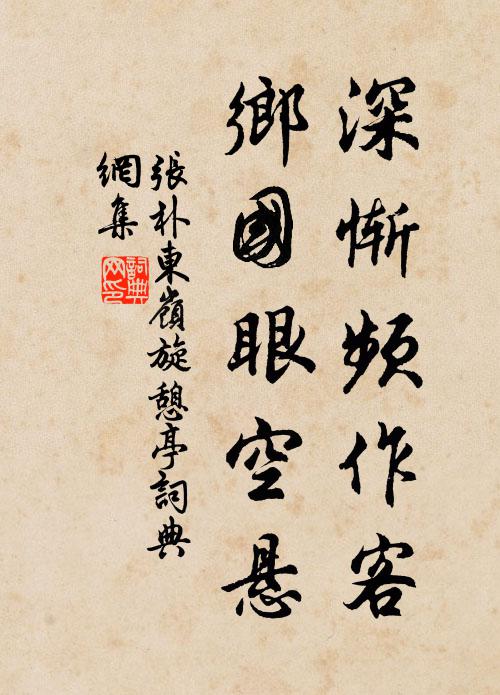 深慚頻作客
鄉國眼空悬
張朴東嶺旋憩亭詞典
網集
詞典
网印